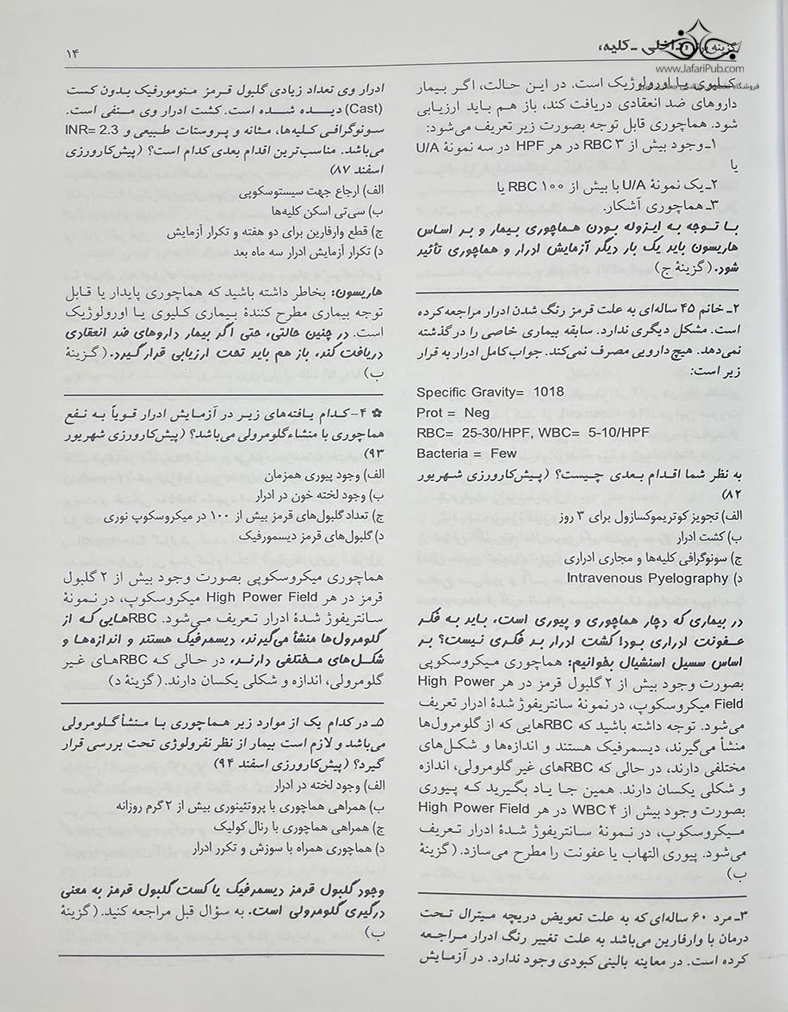 گزینه برتر داخلی - کلیه،
۱۴
www.JafariPub.com
کلیوی یا اورولوژیک است. در این حالت، اگر بیمار
داروهای ضد انعقادی دریافت کند، باز هم باید ارزیابی
شود. هماچوری قابل توجه بصورت زیر تعریف می‌شود:
۱ـ وجود بیش از ۳ RBC در هر HPF در سه نمونهٔ U/A
یا
۲ـ یک نمونهٔ U/A با بیش از ۱۰۰ RBC یا
۳ـ هماچوری آشکار.
با توجه به ایزوله بودن هماچوری بیمار و بر اساس
هاریسون باید یک بار دیگر آزمایش ادرار و هماچوری تأئیر
شود. (گزینهٔ ج)
۲ـ خانم ۴۵ ساله‌ای به علت قرمز رنگ شدن ادرار مراجعه کرده
است. مشکل دیگری ندارد. سابقه بیماری خاصی را در گذشته
نمی‌دهد. هیچ دارویی مصرف نمی‌کند. جواب کامل ادرار به قرار
زیر است:
Specific Gravity= 1018
Prot = Neg
RBC= 25-30/HPF, WBC= 5-10/HPF
Bacteria = Few
به نظر شما اقدام بعدی چیست؟ (پیش‌کارورزی شهریور
۸۲)
الف) تجویز کوتریموکسازول برای ۳ روز
ب) کشت ادرار
ج) سونوگرافی کلیه‌ها و مجاری ادراری
د) Intravenous Pyelography
در بیماری که دچار هماچوری و پیوری است، باید به فکر
عفونت ادراری بود! کشت ادرار بد فکری نیست؟ بر
اساس سسیل اسنشیال بخوانیم: هماچوری میکروسکوپی
بصورت وجود بیش از ۲ گلبول قرمز در هر High Power
Field میکروسکوپ، در نمونهٔ سانتریفوژ شدهٔ ادرار تعریف
می‌شود. توجه داشته باشید که RBCهایی که از گلومرول‌ها
منشأ می‌گیرند، دیسمرفیک هستند و اندازه‌ها و شکل‌های
مختلفی دارند، در حالی که RBCهای غیر گلومرولی، اندازه
و شکلی یکسان دارند. همین جا یاد بگیرید که پیوری
بصورت وجود بیش از ۴ WBC در هر High Power Field
میکروسکوپ، در نمونهٔ سانتریفوژ شدهٔ ادرار تعریف
می‌شود. پیوری التهاب یا عفونت را مطرح می‌سازد. (گزینهٔ
ب)
۳ـ مرد ۶۰ ساله‌ای که به علت تعویض دریچه میترال تحت
درمان با وارفارین می‌باشد به علت تغییر رنگ ادرار مراجعه
کرده است. در معاینه بالینی کبودی وجود ندارد. در آزمایش
ادرار وی تعداد زیادی گلبول قرمز منومورفیک بدون کست
(Cast) دیده شده است. کشت ادرار وی منفی است.
سونوگرافی کلیه‌ها، مثانه و پروستات طبیعی و INR= 2.3
می‌باشد. مناسب‌ترین اقدام بعدی کدام است؟ (پیش‌کارورزی
اسفند ۸۷)
الف) ارجاع جهت سیستوسکوپی
ب) سی‌تی اسکن کلیه‌ها
ج) قطع وارفارین برای دو هفته و تکرار آزمایش
د) تکرار آزمایش ادرار سه ماه بعد
هاریسون: بخاطر داشته باشید که هماچوری پایدار یا قابل
توجه بیماری مطرح کنندهٔ بیماری کلیوی یا اورولوژیک
است. در چنین حالتی، حتی اگر بیمار داروهای ضد انعقادی
دریافت کند، باز هم باید تحت ارزیابی قرار گیرد. (گزینهٔ
ب)
✿ ۴-کدام یافته‌های زیر در آزمایش ادرار قویاً به نفع
هماچوری با منشاء گلومرولی می‌باشد؟ (پیش‌کارورزی شهریور
۹۳)
الف) وجود پیوری همزمان
ب) وجود لخته خون در ادرار
ج) تعداد گلبول‌های قرمز بیش از ۱۰۰ در میکروسکوپ نوری
د) گلبول‌های قرمز دیسمورفیک
هماچوری میکروسکوپی بصورت وجود بیش از ۲ گلبول
قرمز در هر High Power Field میکروسکوپ، در نمونهٔ
سانتریفوژ شدهٔ ادرار تعریف می‌شود. RBCهایی که از
گلومرول‌ها منشأ می‌گیرند، دیسمرفیک هستند و اندازه‌ها و
شکل‌های مختلفی دارند، در حالی که RBCهای غیر
گلومرولی، اندازه و شکلی یکسان دارند. (گزینهٔ د)
۵ـ در کدام یک از موارد زیر هماچوری با منشأ گلومرولی
می‌باشد و لازم است بیمار از نظر نفرولوژی تحت بررسی قرار
گیرد؟ (پیش‌کارورزی اسفند ۹۴)
الف) وجود لخته در ادرار
ب) همراهی هماچوری با پروتئینوری بیش از ۲ گرم روزانه
ج) همراهی هماچوری با رنال کولیک
د) هماچوری همراه با سوزش و تکرر ادرار
وجود گلبول قرمز دیسمرفیک یا کست گلبول قرمز به معنی
درگیری گلومرولی است. به سؤال قبل مراجعه کنید. (گزینهٔ
ب)